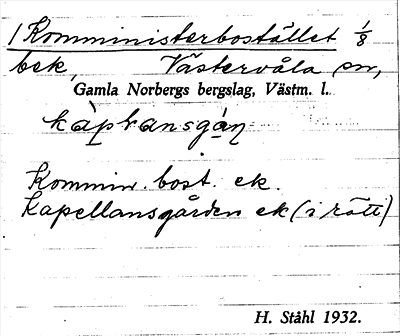 1 Komministerbostället 1/8
bek, Västervåla sn,
Gamla Norbergs bergslag, Västm. l.
kàplransgán
Kommin. bost. ek.
Kapellansgården ek (i rätt)
H. Ståhl 1932.